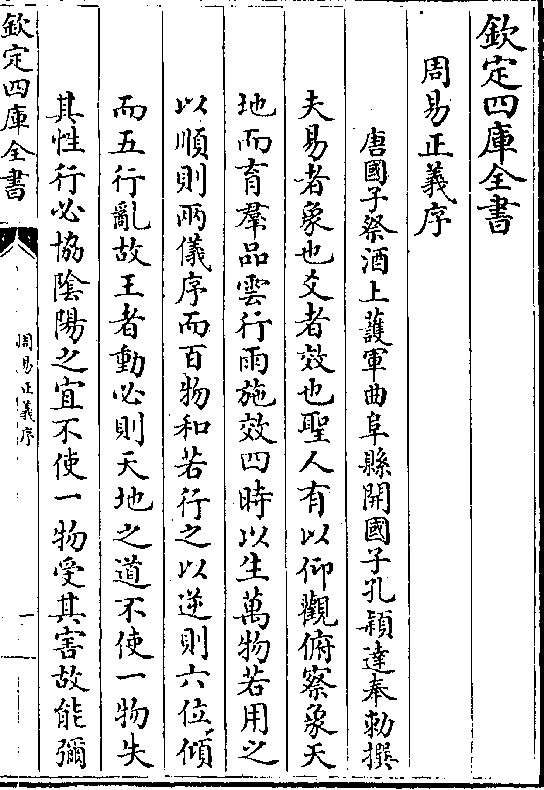 欽定四庫全書
周易正義序
唐國子祭酒上護軍曲阜縣開國子孔穎達奉勅撰
夫易者象也爻者效也聖人有以仰觀俯察象天
地而育羣品雲行雨施效四時以生萬物若用之
以順則兩儀序而百物和若行之以逆則六位傾
而五行亂故王者動必則天地之道不使一物失
其性行必協陰陽之宜不使一物受其害故能彌
欽定四庫全書
周易正義序
一